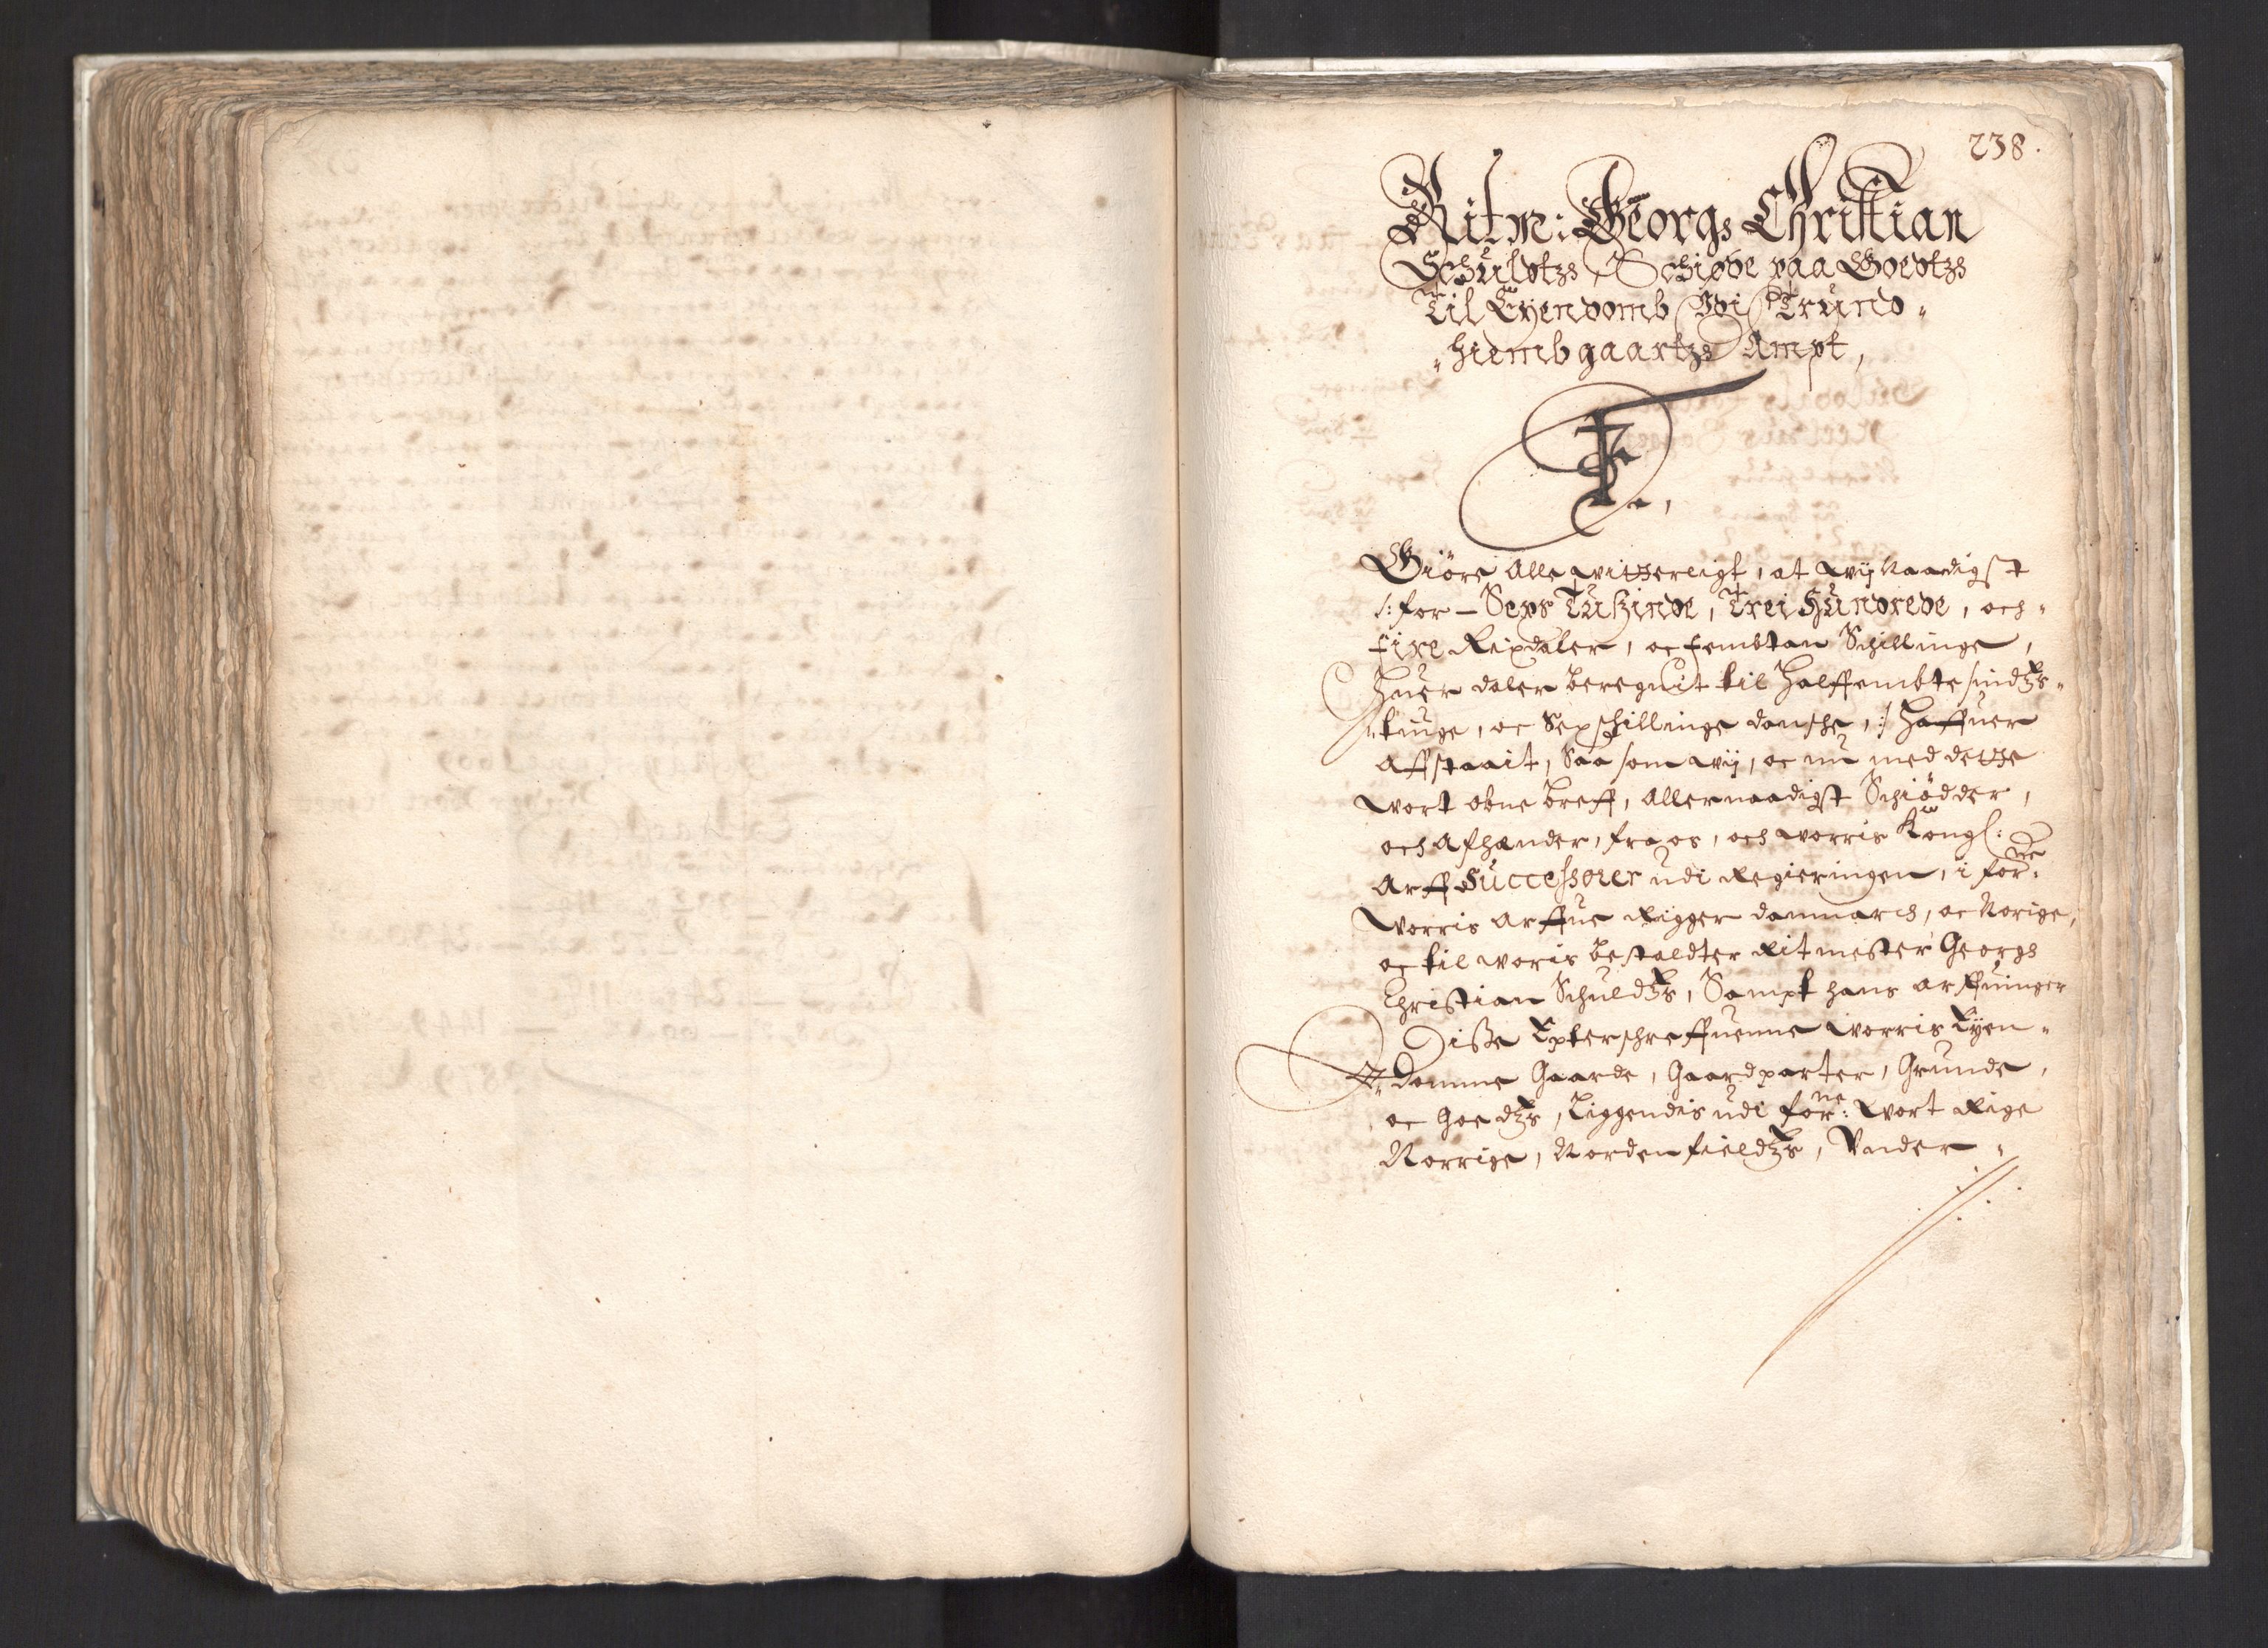 238.
Ritm: Georgs Christian
Schuldtzs, Schiøde paa Goedtzs
Til Eyendomb Wdi Trund„
„hiembgaartzs Ampt,
F.,
Giöre Alle witterligt, at wij Naadigst
/: for – Sexs Tußinde, Trei Hundrede, och„
fire Rixdaler, oc fembtan Schillinge,
Huer daler beregnit til Halffembte sindtzs„
„tiuge, oc Sex schillinge danshe, :/ Haffuer
Affstaait, Saa som wij, oc nu med dette
wort obne breff, Allernaadigst Schiödder,
och Afhænder, fra os, och worris Kongl:
Arff Successorer udi Regieringen, i forne:
Worris Arffue Rigger danmarch, oc Norige,
oc til woris bestaldter Ritmester Georgs
Christian Schuldtzs, Sampt hans Arffuinger
Disse Epterschreffuenne worris Eyen„
„domme Gaarde, Gaardparter, Grunde,
oc Goedtzs, Liggendis udi forne: wort Rige
Norrige, Nordenfieldtzs, Vnder„